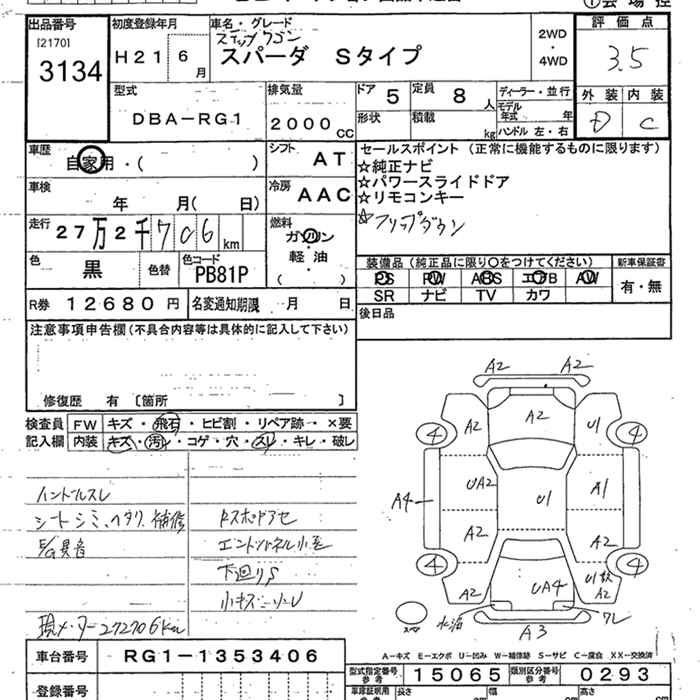 出品番号 初度登録年月 車名・グレード 評価点
[2170] ステップワゴン
3134 H21 6月 スパーダ Sタイプ 2WD・4WD 3.5
型式 排気量 ドア 5 定員 8人 ディーラー・並行 外装 内装
DBA-RG1 2000CC 形状 積載 kg モデル年式 年 D C
ハンドル 左・右
車歴 自家用・( ) シフト AT セールスポイント (正常に機能するものに限ります)
☆純正ナビ
車検 年 月( 日) 冷房 AAC ☆パワースライドドア
☆リモコンキー
走行 27万2千706km 燃料 ガソリン ☆フリップダウン
軽・油
( )
色 黒 色替 色コード PB81P 装備品(純正品に限り○をつけてください) 新車保証書
PS PW ABS エアB AW 有・無
R券 12680円 名変通知期限 月 日 SR ナビ TV カワ
注意事項申告欄(不具合内容等は具体的に記入して下さい) 後日品
修復歴 有 [箇所 ]
検査員 FW キズ・飛石・ヒビ割・リペア跡・×要
記入欄 内装 キズ・汚レ・コゲ・穴・スレ・キレ・破レ
ハンドルスレ
シートシミ、ヘタリ、補修
E/G異音
下廻りS
小キズ
現メーター272706Km
A2 A2
A2
4 A2 U1 4
A4 UA2 U1 A1
A2 A2
4 4
A2 UA4 A2
A3
A-キズ E-エクボ U-凹み W-補修跡 S-サビ C-腐食 XX-交換済
車台番号 RG1-1353406 型式指定番号 参考 15065 類別区分番号 参考 0293
登録番号 長さ 幅 高さ